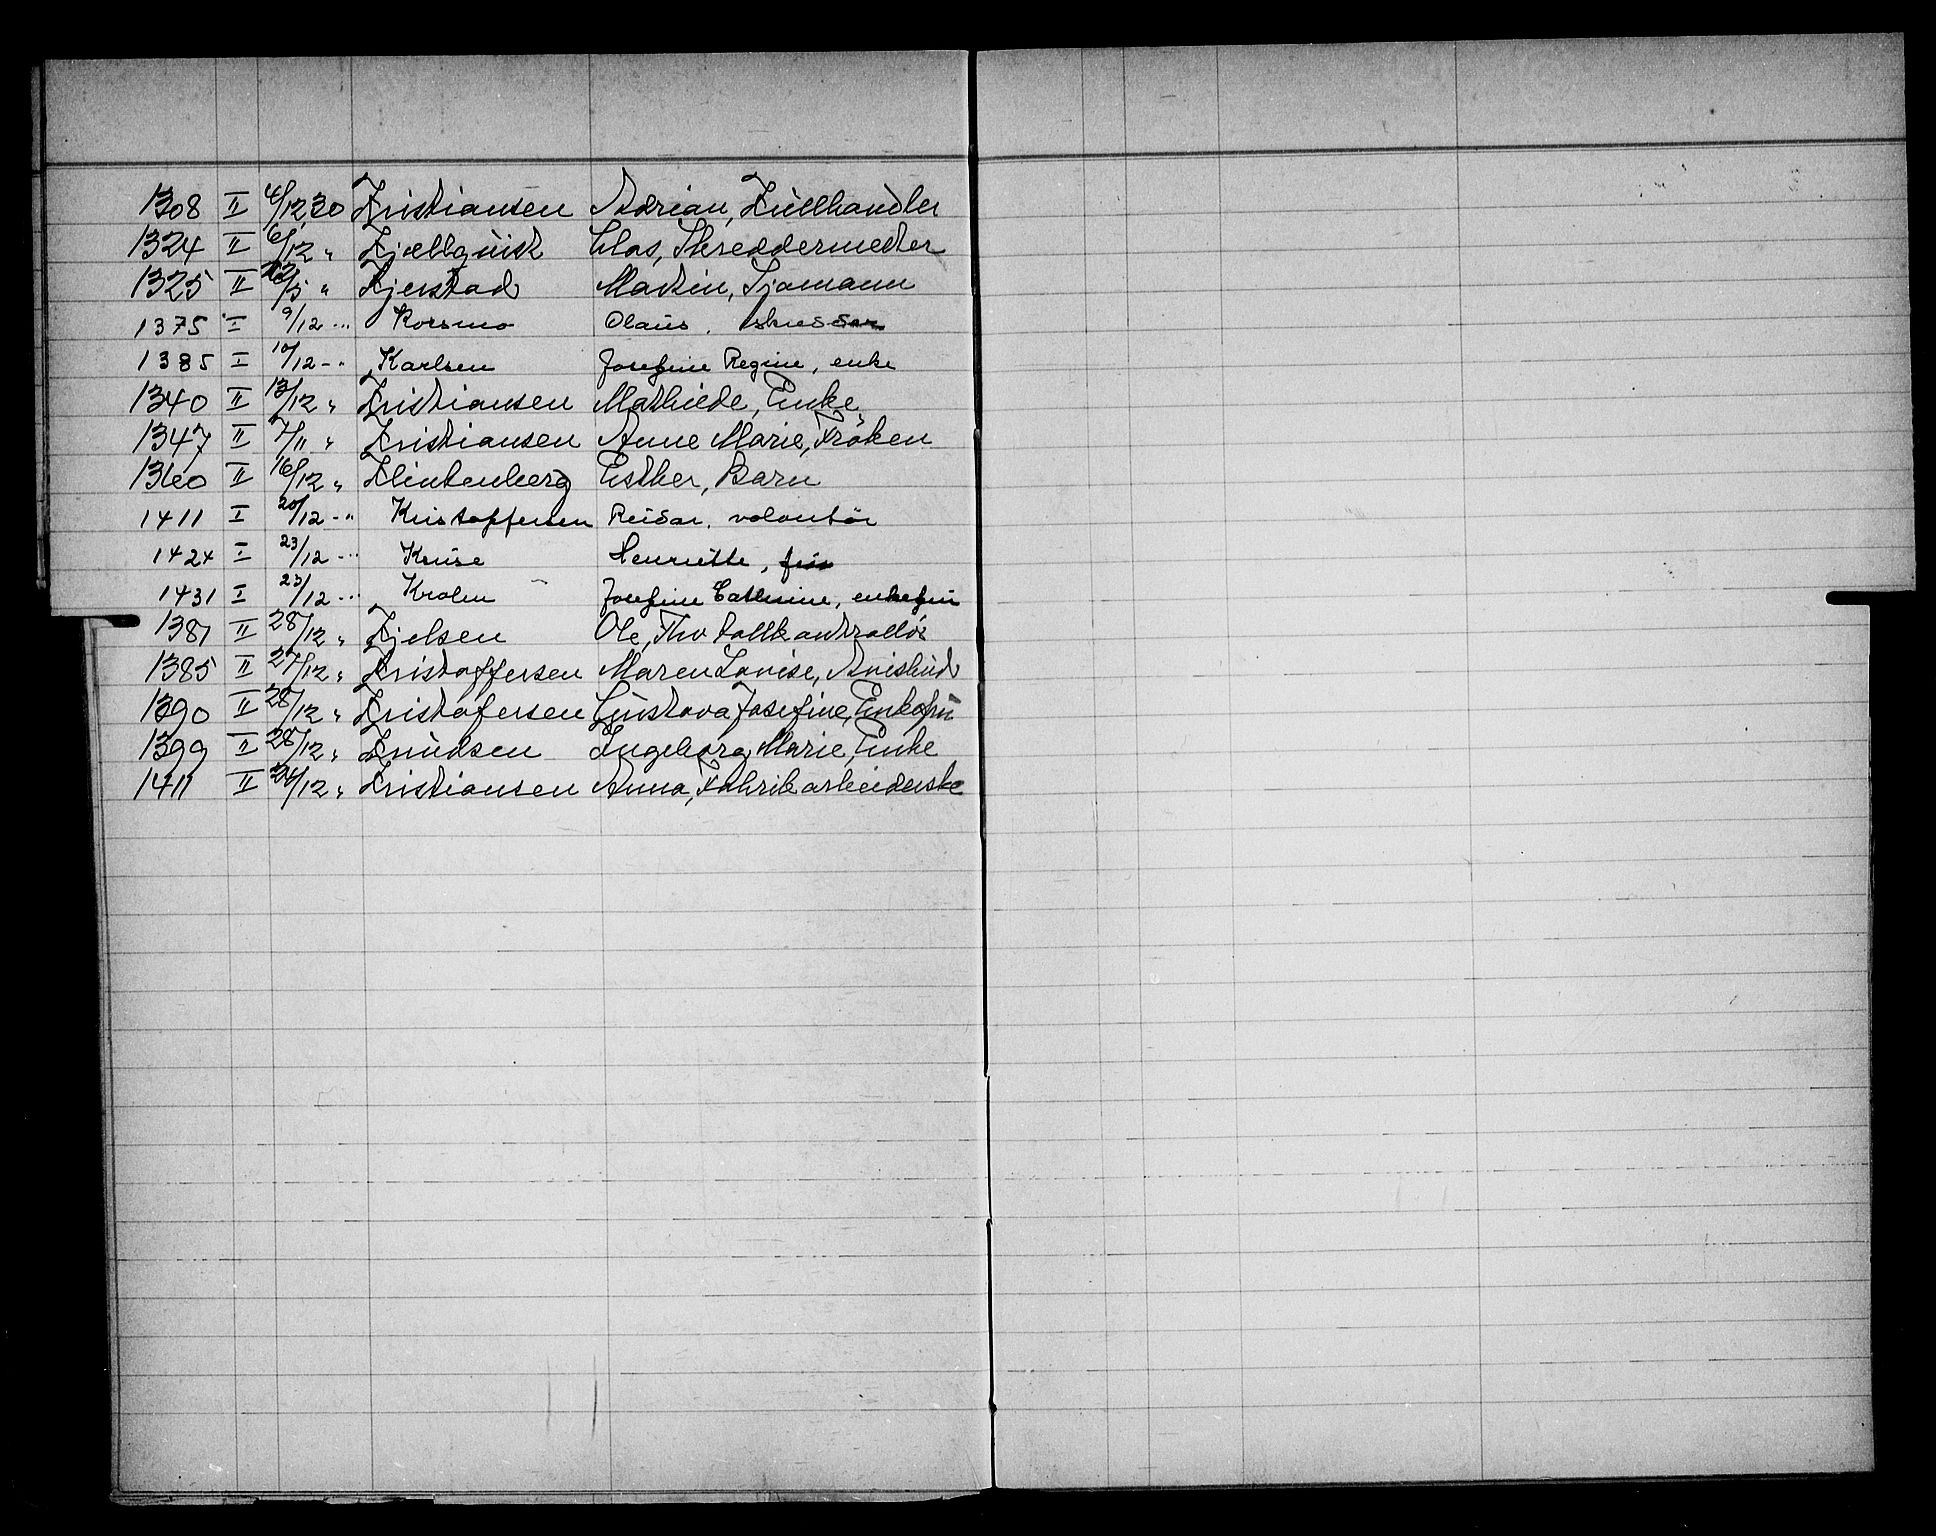 1308 II 4/12 30 Kristiansen Adrian, Kullhandler
1324 II 6/12 " Kjellquist Clas, Skreddermester
1325 II 22/5 " Kjerstad Martin, Sjømann
1375 I 9/12 -" Korsmo Olaus.
1385 I 10/12 -" Karlsen Josefine Regine, enke
1340 II 13/12 " Kristiansen Mathilde, Enke
1347 II 7/11 " Kristiansen Anne Marie, Frøken
1360 II 16/12 " Klintenberg Esther, Barn
1411 I 20/12 -" Kristoffersen Reidar, volontør
1424 I 23/12 -" Kruse Henriette, frue
1431 I 23/12 -" Krohn Josefine Cathrine, enkefru
1381 II 28/12 " Kjelsen Ole, Tho tollkontrollør
1385 II 27/12 " Kristoffersen Maren Lovise, Avisbud
1390 II 28/12 " Kristofersen Gustava Josefine, Enkefru
1399 II 28/12 " Knudsen Ingeborg Marie, Enke
1411 II 24/12 " Kristiansen Anna, Fabrikarbeiderske